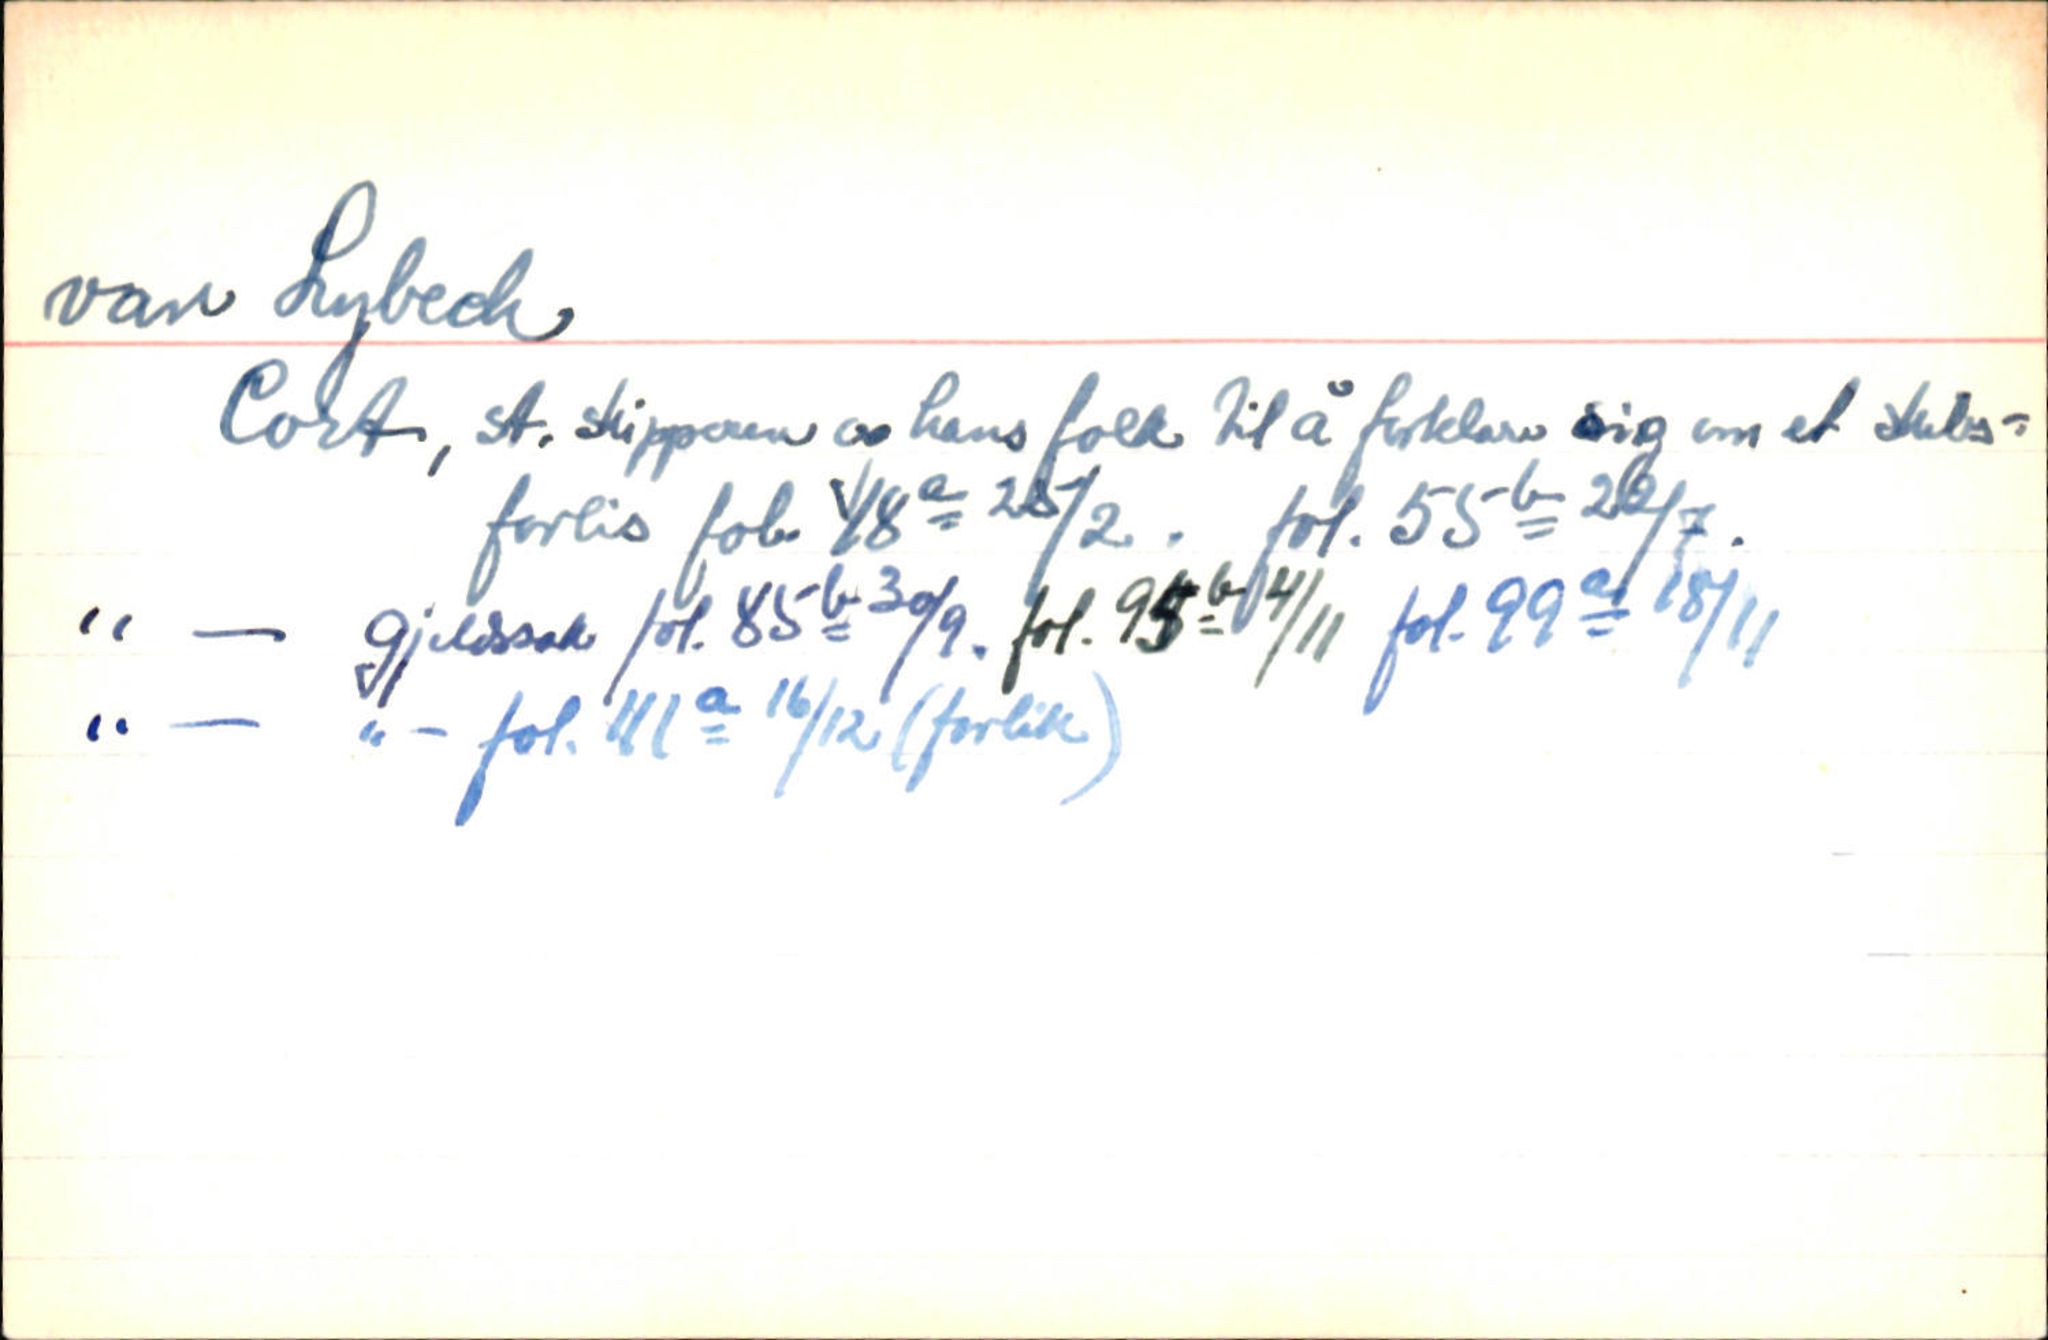 van Lybeck
Cort, st. skipperen oo hans folk til å forklare sig om et skibs=
forlis fol. 18ª 25/2. fol. 55b 22/7.
" — gjeldssak fol. 85b 30/9. fol. 95b 4/11 fol. 99ª 18/11
" — " - fol. 111ª 16/12 (forlik)